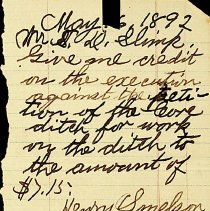 Mar. 6, 1892
Mr S. D. Slink
Give me credit
on the execution
against the Peti-
tion of the
ditch for work
on the ditch to
the amount of
$7.15:
Henry